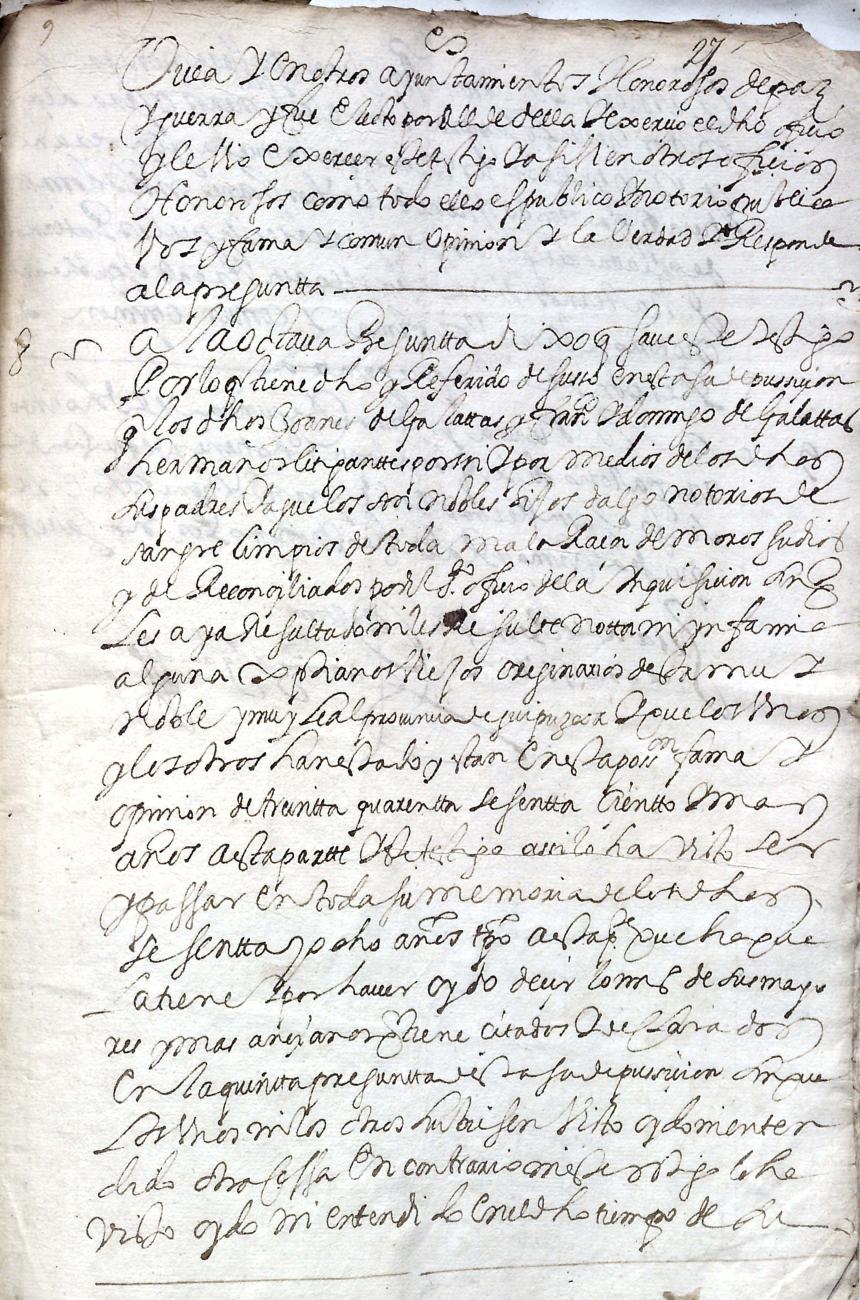 9
27
Villa y en otros ayuntamientos Honorosos de paz
y guerra y fue electo por Alcalde della y exercio el dho ofiçio
y le vio exercer este testigo y asi en otros ofiçios
Honorosos como todo ello es publico y notorio publica
voz y fama y comun opinion y la verdad y Responde
a la pregunta
8 A la octava Pregunta dixo q save este testigo
Por lo q tiene dho y Referido de suso en esta su depussicion
q los dhos Joanes de Galattas y Franco y domingo de Galattas
hermanos litiganttes por si y por medios de los dhos
sus padres y aguelos son nobles hijos dalgo notorios de
sangre limpios de toda mala Raça de moros Judios
y de Reconçiliados por el Sto ofiçio de la Inquisicion sin q
les aya Resultado ni les Resulte notta ni ynfamia
alguna Xptianos Viejos originarios desta muy
noble y muy Leal provincia de guipuzcoa y que los unos
y los otros han estado y estan en esta posson fama y
opinion de treintta quarentta sesentta cientto y mas
años a esta partte y este testigo assi lo ha visto ser
y passar en toda su memoria de los dhos
sesentta y ocho años tpo a esta pte que ha que
la tiene y por haver oydo decir lo mismo de sus mayo
res y mas ançianos q tiene citados y declarados
en la quintta pregunta desta su depussicion sin que
los unos ni los otros hubiesen visto oydo ni enten
dido otra cossa en contrario ni este testigo lo ha
visto oydo ni entendido en el dho tiempo de su